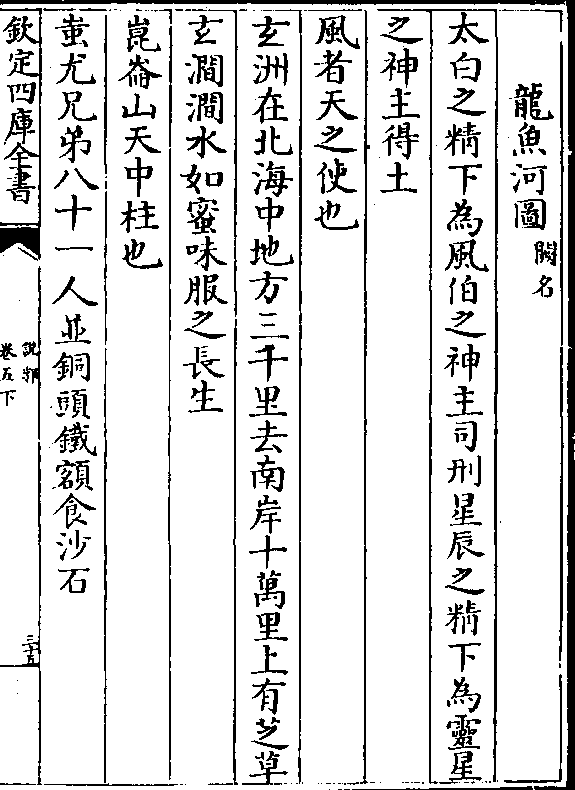 龍魚河圖 闕名
太白之精下為風伯之神主司刑星辰之精下為靈星
之神主得土
風者天之使也
玄洲在北海中地方三千里去南岸十萬里上有芝草
玄澗澗水如蜜味服之長生
崑崙山天中柱也
蚩尤兄弟八十一人並銅頭鐵額食沙石
欽定四庫全書
說郛
卷五下
三十五